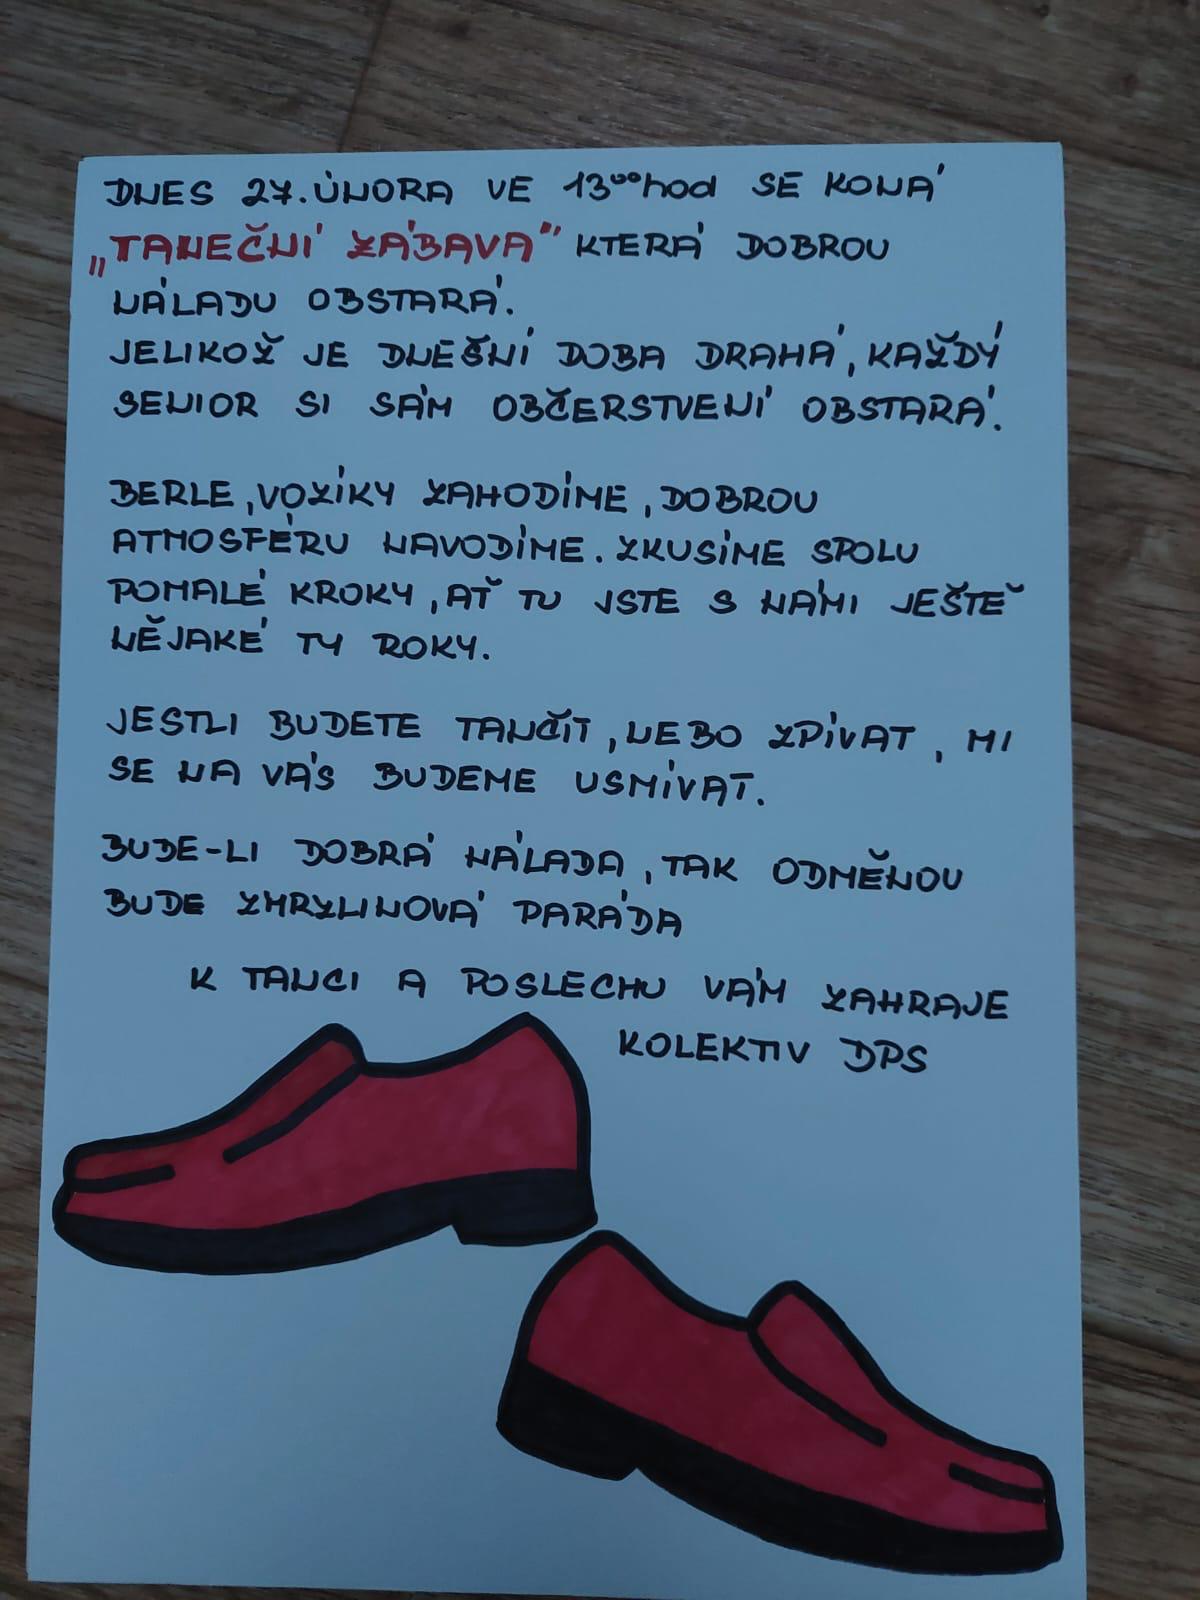 DNES 27. ÚNORA VE 13⁰⁰hod SE KONÁ
„TANEČNÍ ZÁBAVA" KTERÁ DOBROU
NÁLADU OBSTARÁ.
JELIKOŽ JE DNEŠNÍ DOBA DRAHÁ, KAŽDÝ
SENIOR SI SÁM OBČERSTVENÍ OBSTARÁ.
BERLE, VOZÍKY ZAHODÍME, DOBROU
ATMOSFÉRU NAVODÍME. ZKUSÍME SPOLU
POMALÉ KROKY, AŤ TU JSTE S NÁMI JEŠTĚ
NĚJAKÉ TY ROKY.
JESTLI BUDETE TANČIT, NEBO ZPÍVAT, MI
SE NA VÁS BUDEME USMÍVAT.
BUDE-LI DOBRÁ NÁLADA, TAK ODMĚNOU
BUDE ZMRZLINOVÁ PARÁDA
K TANCI A POSLECHU VÁM ZAHRAJE
KOLEKTIV DPS